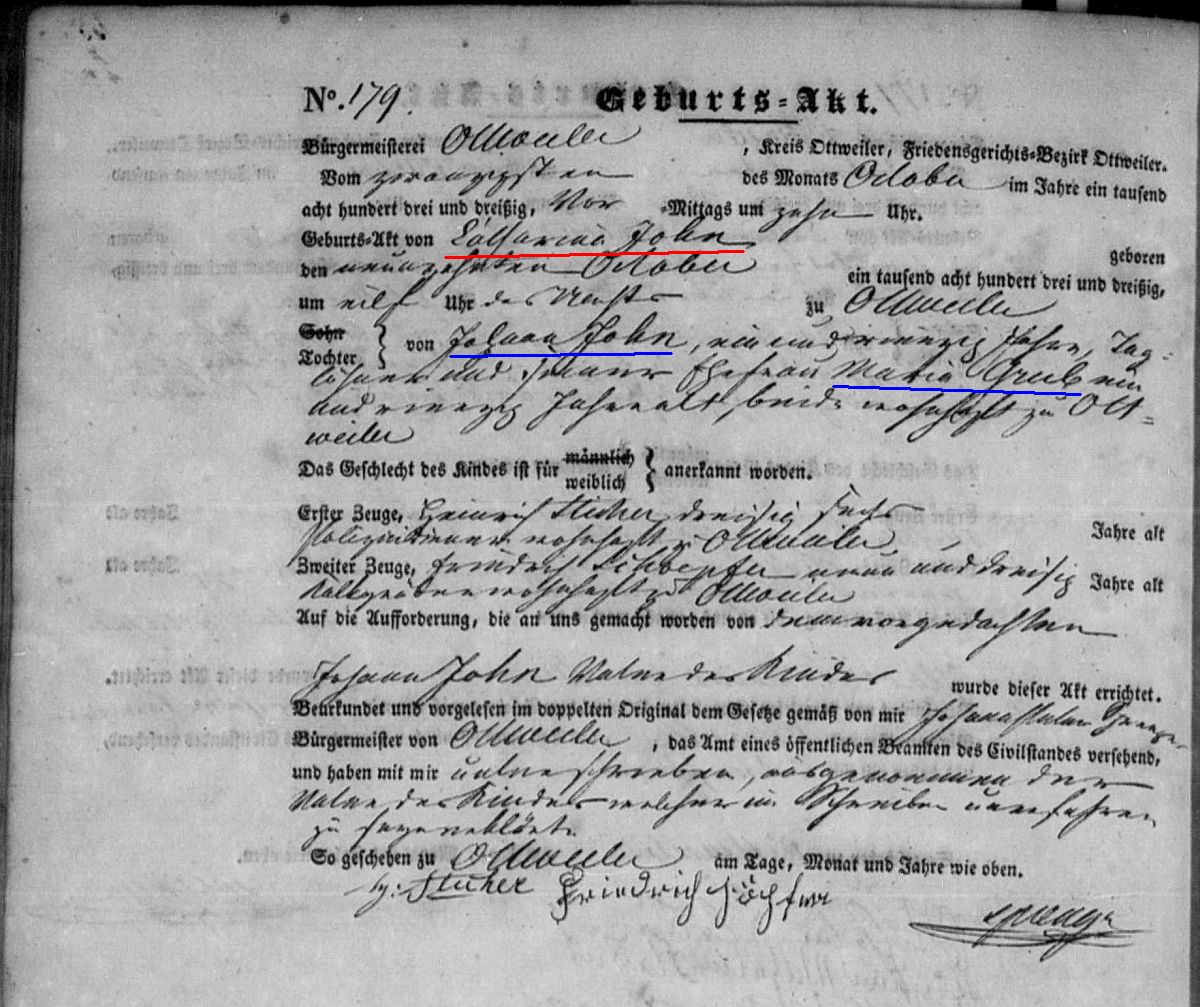 No. 179. Geburts-Akt.
Bürgermeisterei Ottweiler, Kreis Ottweiler, Friedensgerichts-Bezirk Ottweiler.
Vom zwanzigsten des Monats October im Jahre ein tausend
acht hundert drei und dreißig, Vor-Mittags um zehn Uhr.
Geburts-Akt von Catharina John geboren
den neunzehnten October ein tausend acht hundert drei und dreißig,
um eilf Uhr des Nachts zu Ottweiler
Sohn
Tochter } von Johann John, ein und vierzig Jahre, Tag-
löhner und seiner Ehefrau Maria Grub ein
und vierzig Jahre alt, beide wohnhaft zu Ott-
weiler
Das Geschlecht des Kindes ist für männlich
weiblich } anerkannt worden.
Erster Zeuge, Heinrich Stucher dreisig sechs Jahre alt
Polizeidiener wohnhaft zu Ottweiler,
Zweiter Zeuge, Friedrich neun und dreisig Jahre alt
wohnhaft zu Ottweiler
Auf die Aufforderung, die an uns gemacht worden von dem vorgedachten
Johann John Vater des Kindes wurde dieser Akt errichtet.
Beurkundet und vorgelesen im doppelten Original dem Gesetze gemäß von mir
Bürgermeister von Ottweiler, das Amt eines öffentlichen Beamten des Civilstandes versehend,
und haben mit mir unterschrieben, ausgenommen der
Vater des Kindes welcher im Schreiben unerfahren
zu seyn erklärte
So geschehen zu Ottweiler am Tage, Monat und Jahre wie oben.
Hr. Stucher Friedrich